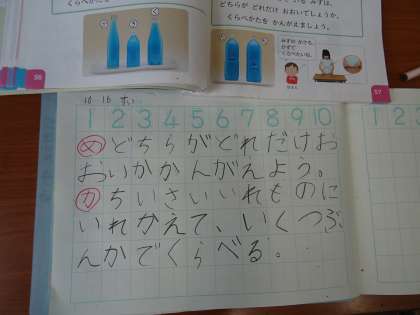 みずは
どちらが どれだけ おおいでしょうか。
くらべかたを かんがえましょう。
56
57
10 16 すい
1 2 3 4 5 6 7 8 9 10
めどちらがどれだけお
おいかかんがえよう。
かちいさいいれものに
いれかえて、いくつぶ
んかでくらべる。